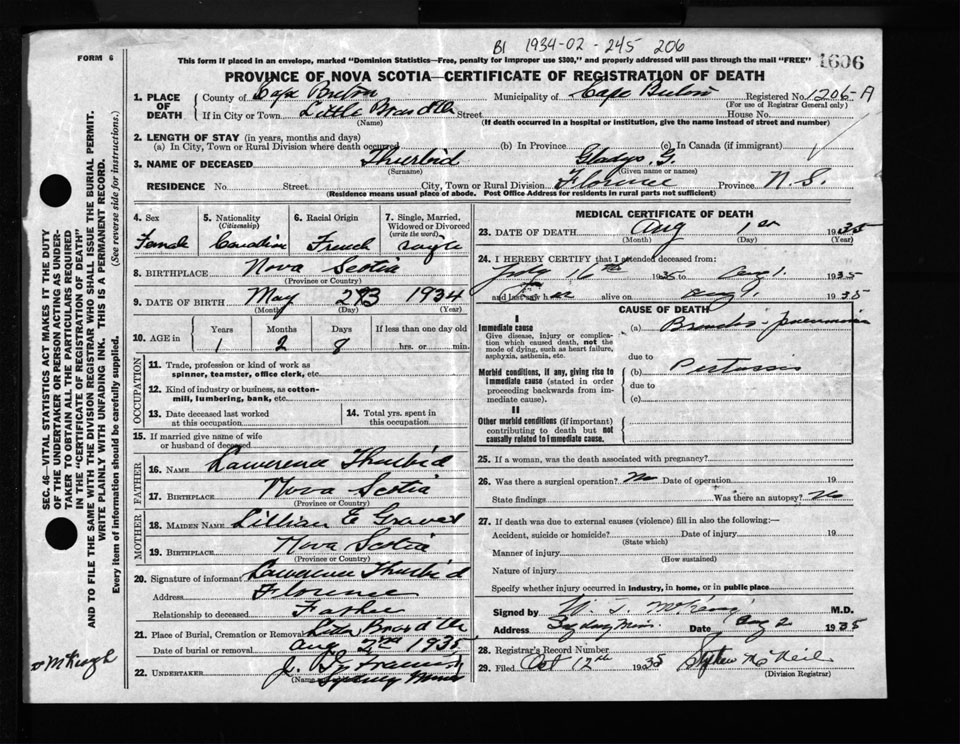 B1 1934-02-245 206
FORM 6
This form if placed in an envelope, marked "Dominion Statistics—Free, penalty for improper use $300," and properly addressed will pass through the mail "FREE"
1606
PROVINCE OF NOVA SCOTIA—CERTIFICATE OF REGISTRATION OF DEATH
1. PLACE OF DEATH County of Cape Breton Municipality of Cape Breton Registered No. 1206-A
(For use of Registrar General only)
If in City or Town Little Bras d'Or Street House No.
(Name) (If death occurred in a hospital or institution, give the name instead of street and number)
2. LENGTH OF STAY (in years, months and days)
(a) In City, Town or Rural Division where death occurred (b) In Province (c) In Canada (if immigrant)
3. NAME OF DECEASED Thurbid Gladys. G.
(Surname) (Given name or names)
RESIDENCE No. Street City, Town or Rural Division Florence Province N.S.
(Residence means usual place of abode. Post Office Address for residents in rural parts not sufficient)
4. Sex 5. Nationality (Citizenship) 6. Racial Origin 7. Single, Married, Widowed or Divorced (write the word)
Female Canadian French single
8. BIRTHPLACE Nova Scotia
(Province or Country)
9. DATE OF BIRTH May 23 1934
(Month) (Day) (Year)
10. AGE in Years Months Days If less than one day old
1 2 8 hrs. or min.
OCCUPATION
11. Trade, profession or kind of work as spinner, teamster, office clerk, etc.
12. Kind of industry or business, as cotton-mill, lumbering, bank, etc.
13. Date deceased last worked at this occupation 14. Total yrs. spent in this occupation
15. If married give name of wife or husband of deceased
FATHER
16. NAME Lawerence Thurbid
17. BIRTHPLACE Nova Scotia
(Province or Country)
MOTHER
18. MAIDEN NAME Lillian E Graves
19. BIRTHPLACE Nova Scotia
(Province or Country)
20. Signature of informant Lawerence Thurbid
Address Florence
Relationship to deceased Father
21. Place of Burial, Cremation or Removal Little Bras d'Or
Date of burial or removal Aug 2nd 1935
22. UNDERTAKER J.
(Name Sydney Mines
MEDICAL CERTIFICATE OF DEATH
23. DATE OF DEATH Aug 1st 1935
(Month) (Day) (Year)
24. I HEREBY CERTIFY that I attended deceased from:
July 16th 1935 to Aug 1. 1935
and last saw h er alive on Aug 1. 1935
CAUSE OF DEATH
I
Immediate cause
Give disease, injury or complication which caused death, not the mode of dying, such as heart failure, asphyxia, asthenia, etc.
(a) Broncho-pneumonia
due to
Morbid conditions, if any, giving rise to immediate cause (stated in order proceeding backwards from immediate cause).
(b) Pertussis
due to
(c)
II
Other morbid conditions (if important) contributing to death but not causally related to immediate cause.
25. If a woman, was the death associated with pregnancy?
26. Was there a surgical operation? No Date of operation 19
State findings Was there an autopsy? No
27. If death was due to external causes (violence) fill in also the following:—
Accident, suicide or homicide? Date of injury 19
(State which)
Manner of injury
(How sustained)
Nature of injury
Specify whether injury occurred in industry, in home, or in public place
Signed by M.D.
Address Syd Mines Date Aug 2 1935
28. Registrar's Record Number
29. Filed Oct 12th 1935 Stephen McNeil
(Division Registrar)
SEC. 46—VITAL STATISTICS ACT MAKES IT THE DUTY
OF THE UNDERTAKER OR PERSON ACTING AS UNDER-
TAKER TO OBTAIN ALL THE PARTICULARS REQUIRED
IN THE "CERTIFICATE OF REGISTRATION OF DEATH"
AND TO FILE THE SAME WITH THE DIVISION REGISTRAR WHO SHALL ISSUE THE BURIAL PERMIT.
WRITE PLAINLY WITH UNFADING INK. THIS IS A PERMANENT RECORD.
Every item of information should be carefully supplied. (See reverse side for instructions.)